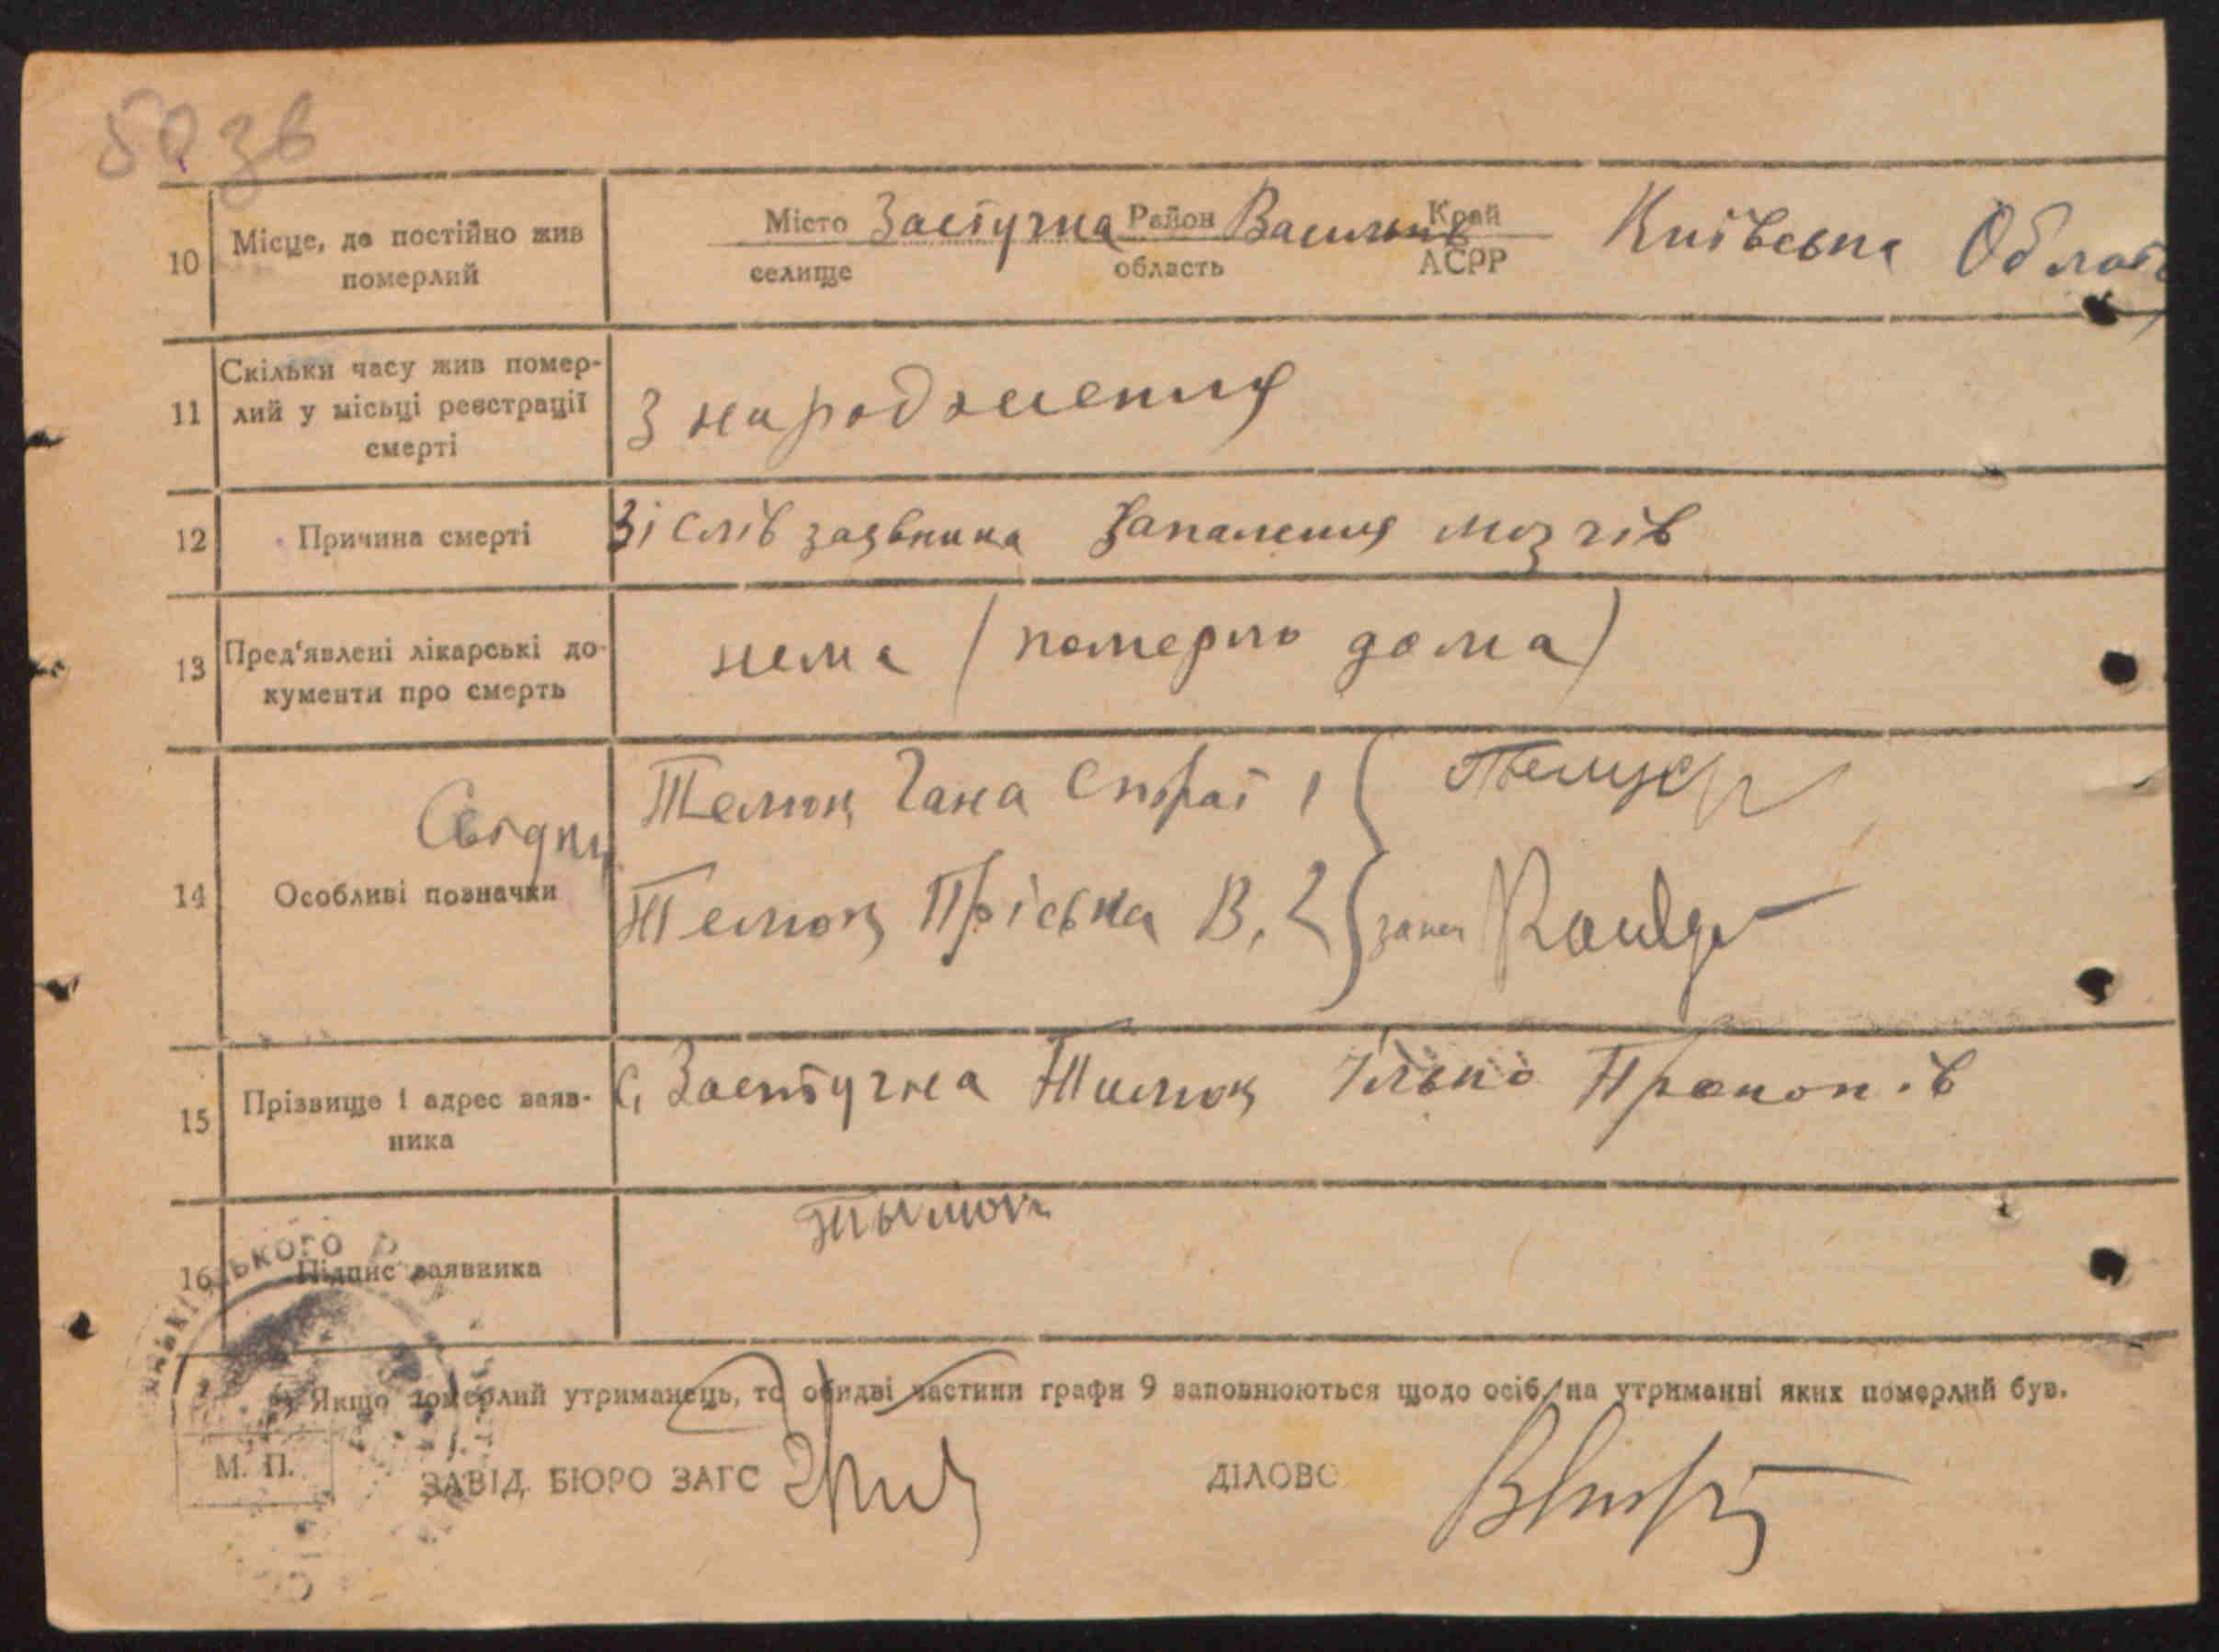 50 зв
10 Місце, де постійно жив померлий
Місто Застугна Район Васильків Край Київська Область
селище область АСРР
11 Скільки часу жив помер-
лий у місьці реєстрації
смерті
З народження
12 Причина смерті
Зі слів заявника Запалення мозгів
13 Пред'явлені лікарські до-
кументи про смерть
нема (померло дома)
Свідки
14 Особливі позначки
Телюк Гана 1
Телюк Пріська В. 2
15 Прізвище і адрес заяв-
ника
с. Застугна Тилюк Ілько Прокопів
16 Підпис заявника
Якщо померлий утриманець, то обидві частини графи 9 заповнюються щодо осіб, на утриманні яких померлий був.
М. П.
ЗАВІД. БЮРО ЗАГС
ДІЛОВО